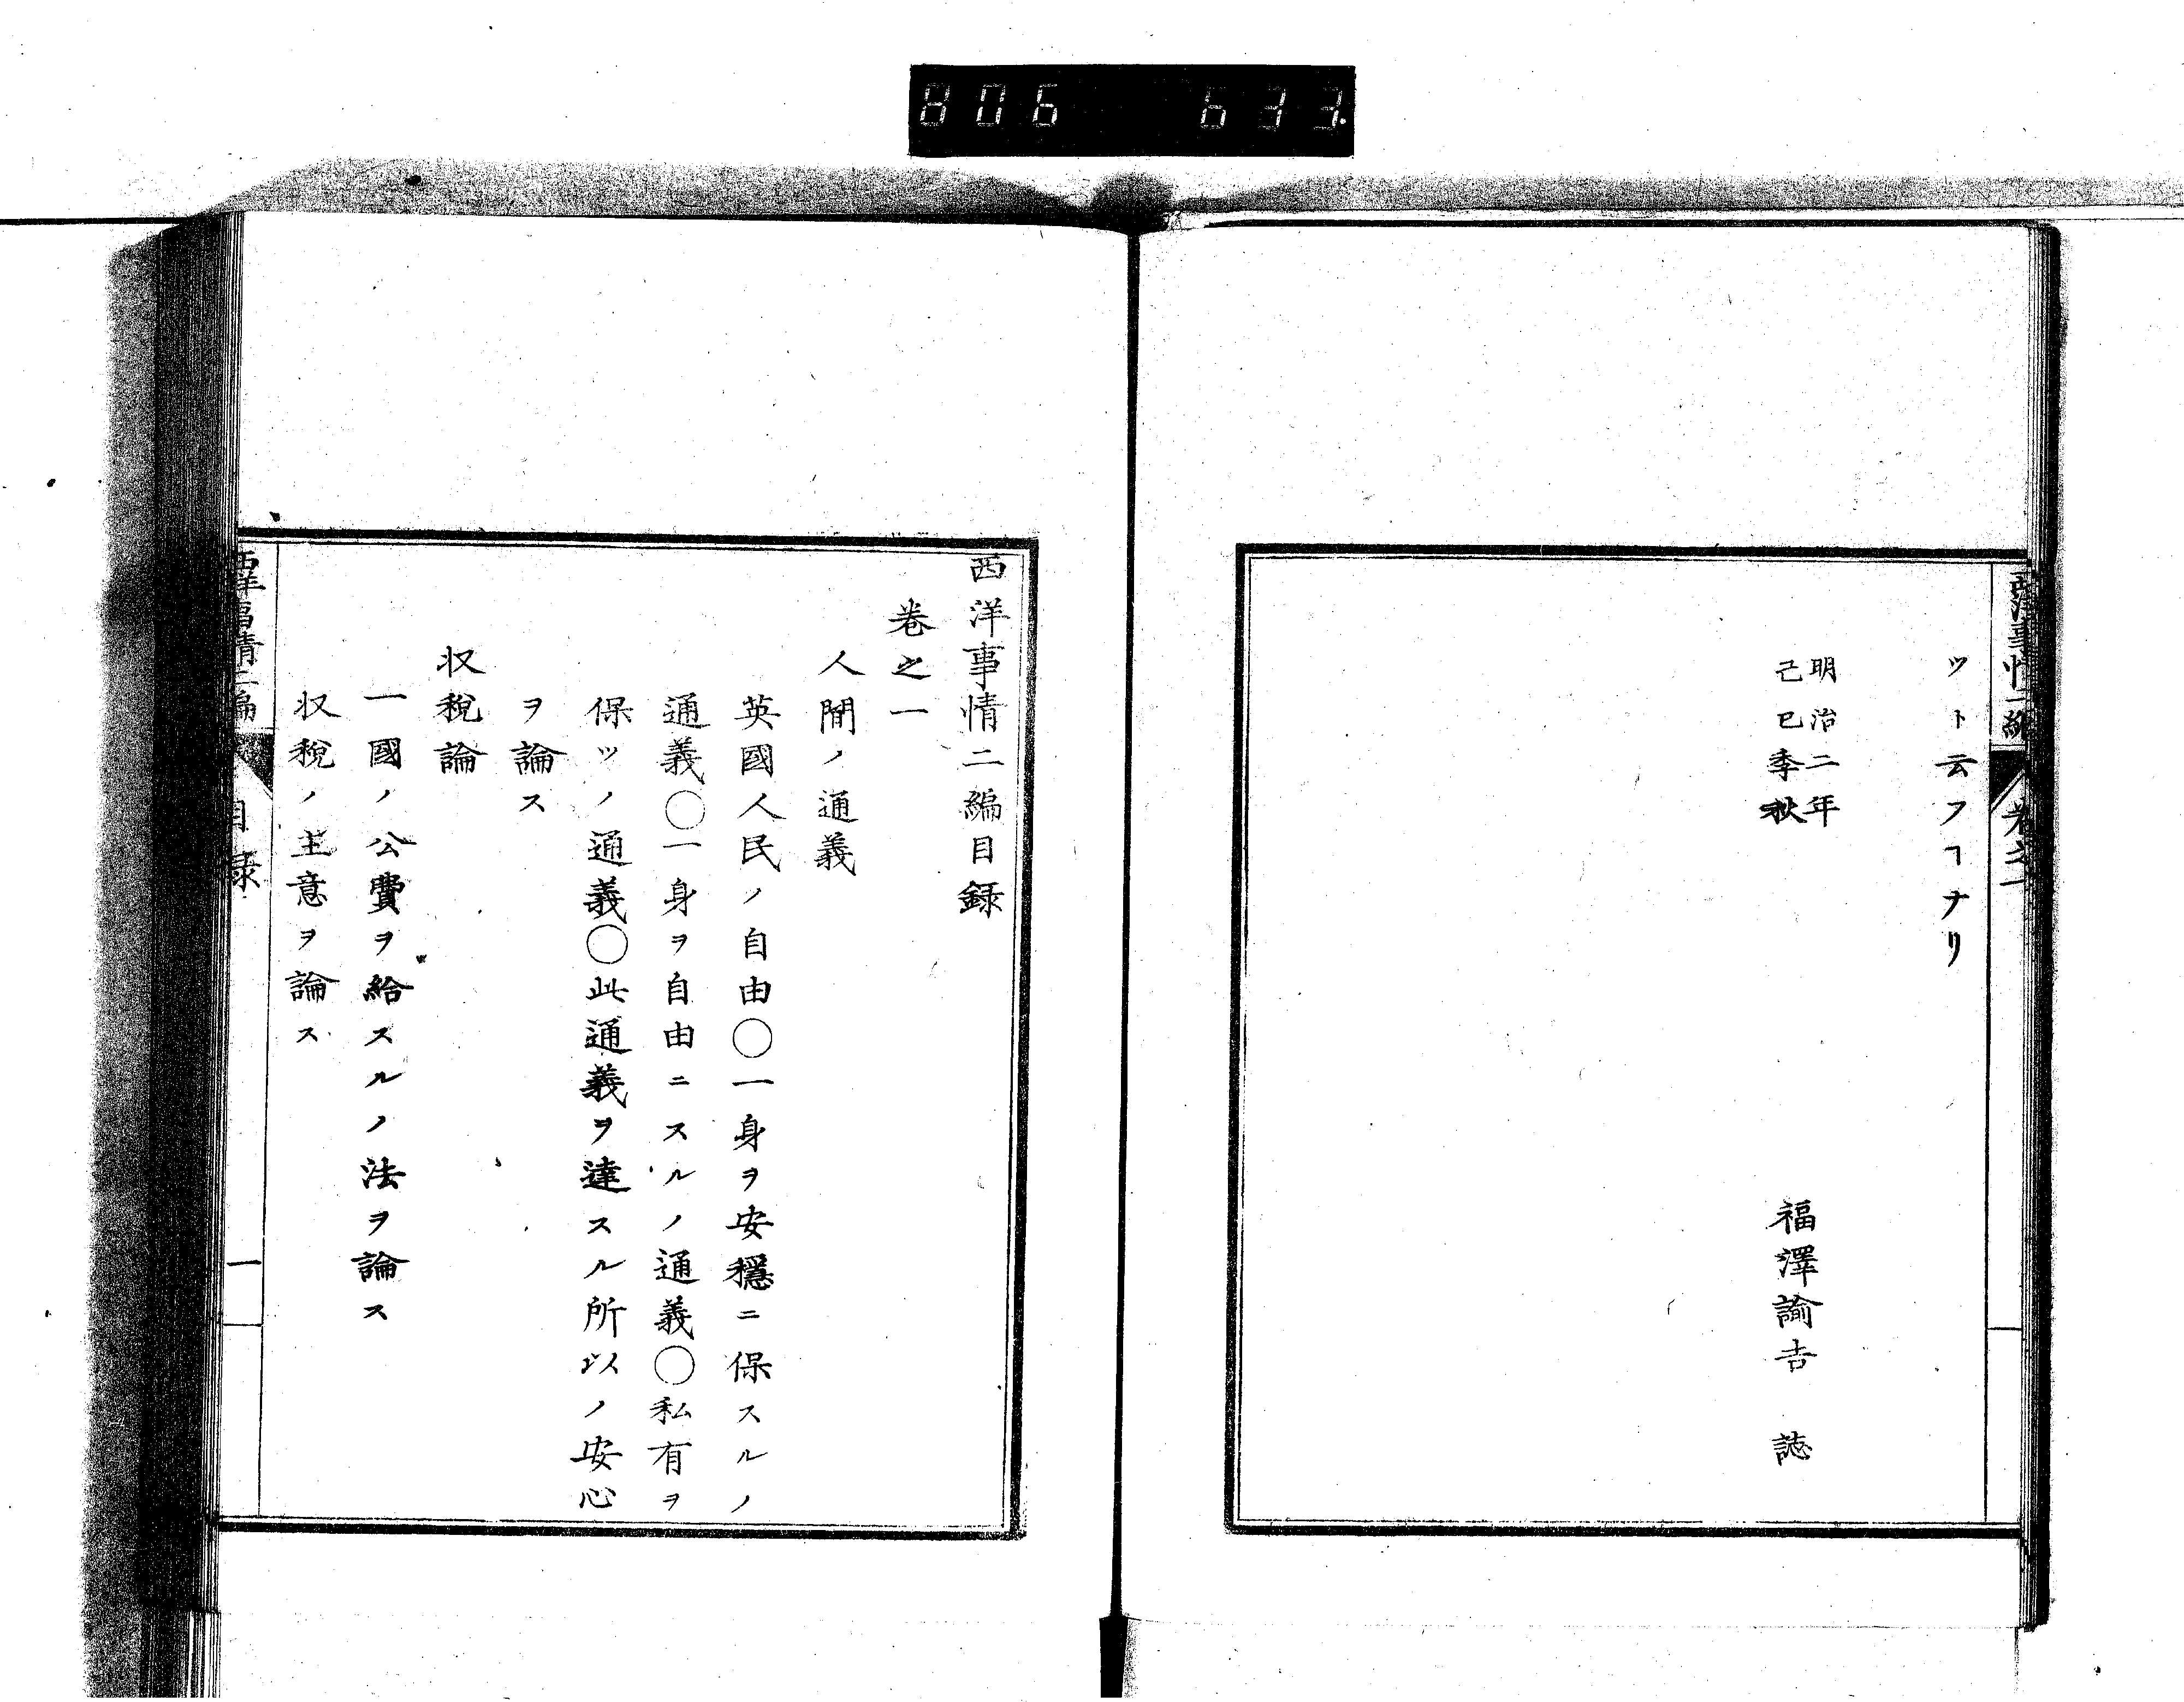 806 633.
西洋事情二編
卷之一
ツト云フヿナリ
明治二年
己巳季秋
福澤諭吉 誌
西洋事情二編目録
卷之一
人間ノ通義
英國人民ノ自由〇一身ヲ安穩ニ保スルノ
通義〇一身ヲ自由ニスルノ通義〇私有ヲ
保ツノ通義〇此通義ヲ達スル所以ノ安心
ヲ論ス
収税論
一國ノ公費ヲ給スルノ法ヲ論ス
収税ノ主意ヲ論ス
目録
一